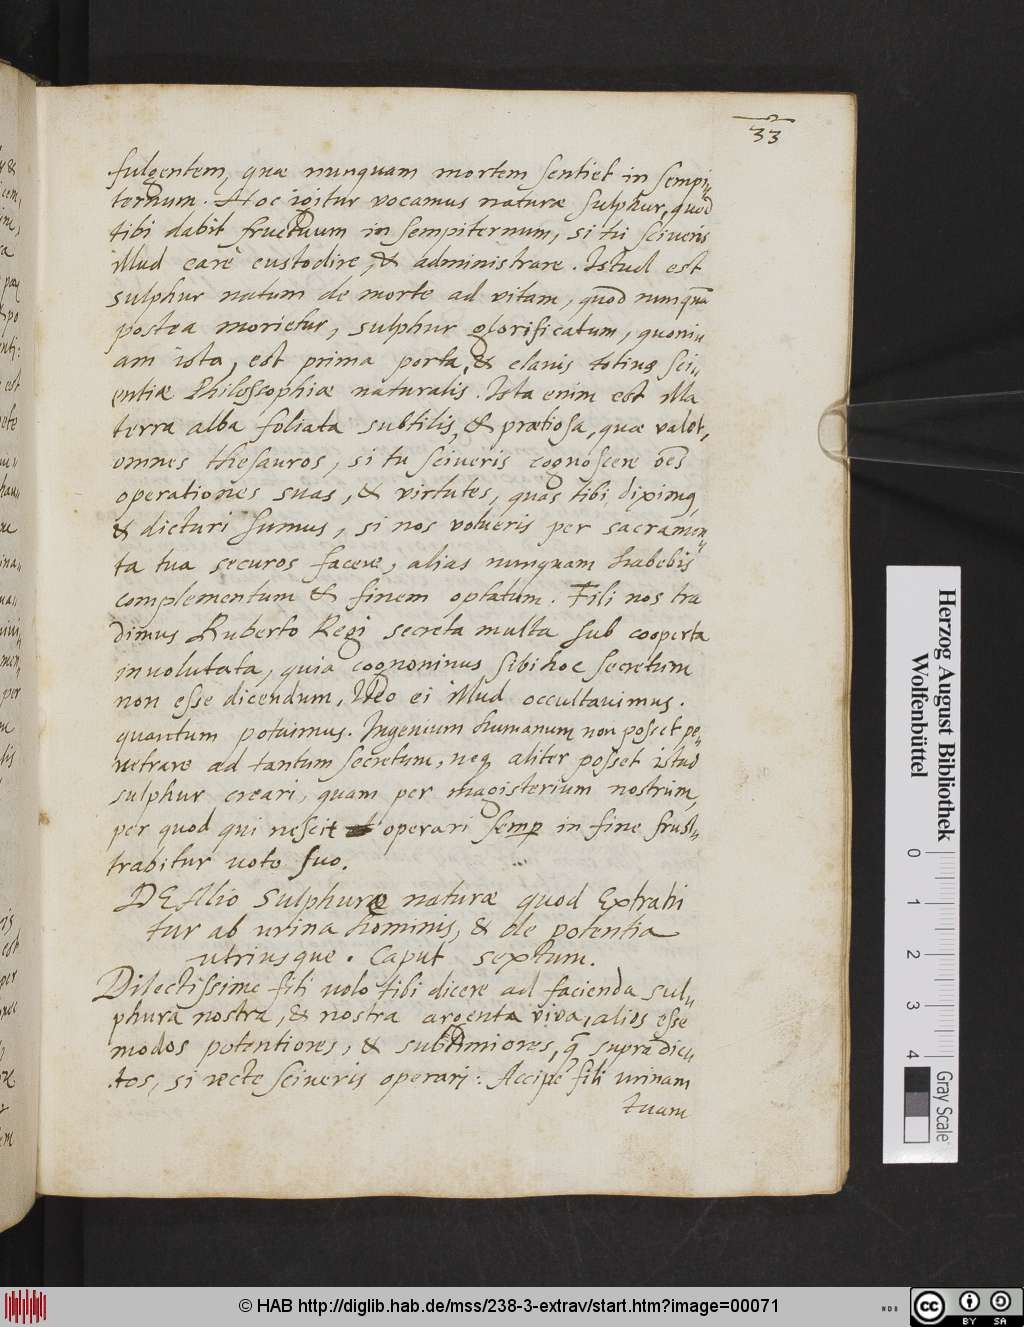 33
fulgentem, quæ nunquam mortem sentiet in sempi„
ternum. Hoc igitur vocamus naturæ sulphur, quod
tibi dabit fructuum in sempiternum, si tu sciueris
illud carè custodire, & administrare. Istud est
sulphur natum de morte ad vitam, quod nunquã
postea morietur, sulphur glorificatum, quoniu
am ista, est prima porta, & clauis totius sci„
entiæ Philossophiæ naturalis. Ista enim est illa
terra alba foliata subtilis, & prætiosa, quæ valet,
omnes thesauros, si tu sciueris cognoscere oẽs
operationes suas, & virtutes, quas tibi diximus,
& dicturi sumus, si nos volueris per sacramen„
ta tua securos facere, alias nunquam habebis
complementum & finem optatum. Fili nos tra
dimus Ruberto Regi secreta multa sub cooperta
inuolutata, quia cognouimus sibi hoc secretum
non esse dicendum, Ideo ei illud occultauimus.
quantum potuimus. Ingenium humanum non posset pe„
netrare ad tantum secretum, neq, aliter posset istud
sulphur creari, quam per magisterium nostrum,
per quod qui nescit operari semp in fine frus„
trabitur uoto suo.
DE Alio sulphure naturæ quod Extrahi
tur ab urina hominis, & de potentia
utriusque. Caput sextum.
Dilectissime fili uolo tibi dicere ad facienda sul„
phura nostra, & nostra argenta viva, alios esse
modos potentiores, & subtimiores, q̃ supra dic„
tos, si recte sciueris operari: Accipe fili urinam
tuam
Herzog August Bibliothek
Wolfenbüttel
0 1 2 3 4
Gray Scale
© HAB http://diglib.hab.de/mss/238-3-extrav/start.htm?image=00071
cc BY SA